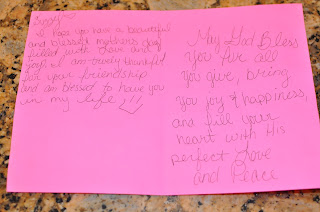 I hope you have a beautiful
and blessed mothers day
filled with love and
joy! I am truly thankful
for your friendship
and am blessed to have you
in my life!!!
May God Bless
you for all
you give, bring
you joy & happiness,
and fill your
heart with His
perfect Love
and Peace